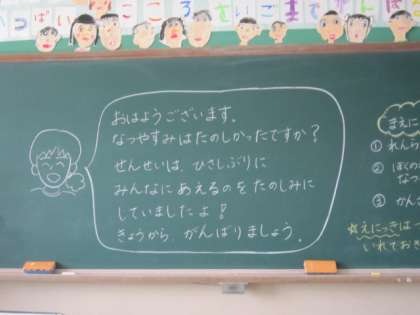 っぱい こころ せいこまで
おはようございます。
なつやすみはたのしかったですか？
せんせいは、ひさしぶりに
みんなにあえるのをたのしみに
していましたよ！
きょうから、がんばりましょう。
まえに
① れんら
② ぼくの
なつ
③ かんさ
☆えにっきは
いれておき